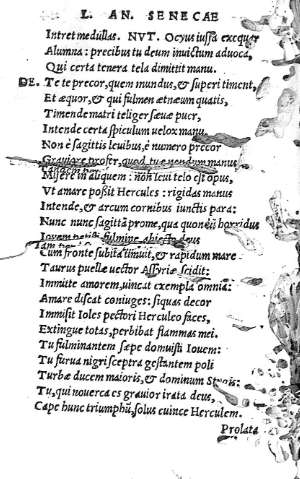 L. AN. SENECAE
Intret medullas. NVT. Ocyus iussa exequar
Alumna: precibus tu deum inuictum aduoca,
Qui certa tenera tela dimittit manu.
DE. Te te precor, quem mundus, & superi timent,
Et æquor, & qui fulmen ætnæum quatis,
Timende matri teliger sæuæ puer,
Intende certa spiculum uelox manu.
Non è sagittis leuibus, è numero precor
Grauiore prostr, quod tuæ nondum manus
Misere in aliquem: non leui telo est opus,
Vt amare possit Hercules: rigidas manus
Intende, & arcum cornibus iunctis para:
Nunc nunc sagittā prome, qua quondā horridus
Iouem petisti fulmine abiecto deus
Cum fronte subita tumuit, & rapidum mare
Taurus puellæ uector Assyriæ scidit:
Immitte amorem, uincat exempla omnia:
Amare discat coniuges: siquas decor
Immisit Ioles pectori Herculeo faces,
Extingue totas, perbibat flammas mei.
Tu fulminantem sæpe domuisti Iouem:
Tu furua nigri sceptra gestantem poli
Turbæ ducem maioris, & dominum Stygis:
Tu, qui nouerca es grauior irata deus,
Cape hunc triumphū, solus euince Herculem.
Prolata